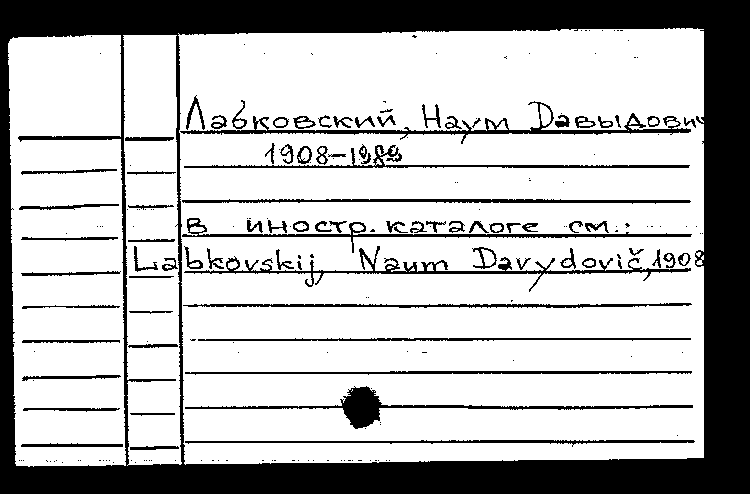 Лабковский, Наум Давыдович
1908-1989
в иностр. каталоге см.:
Labkovskij, Naum Davydovič, 1908